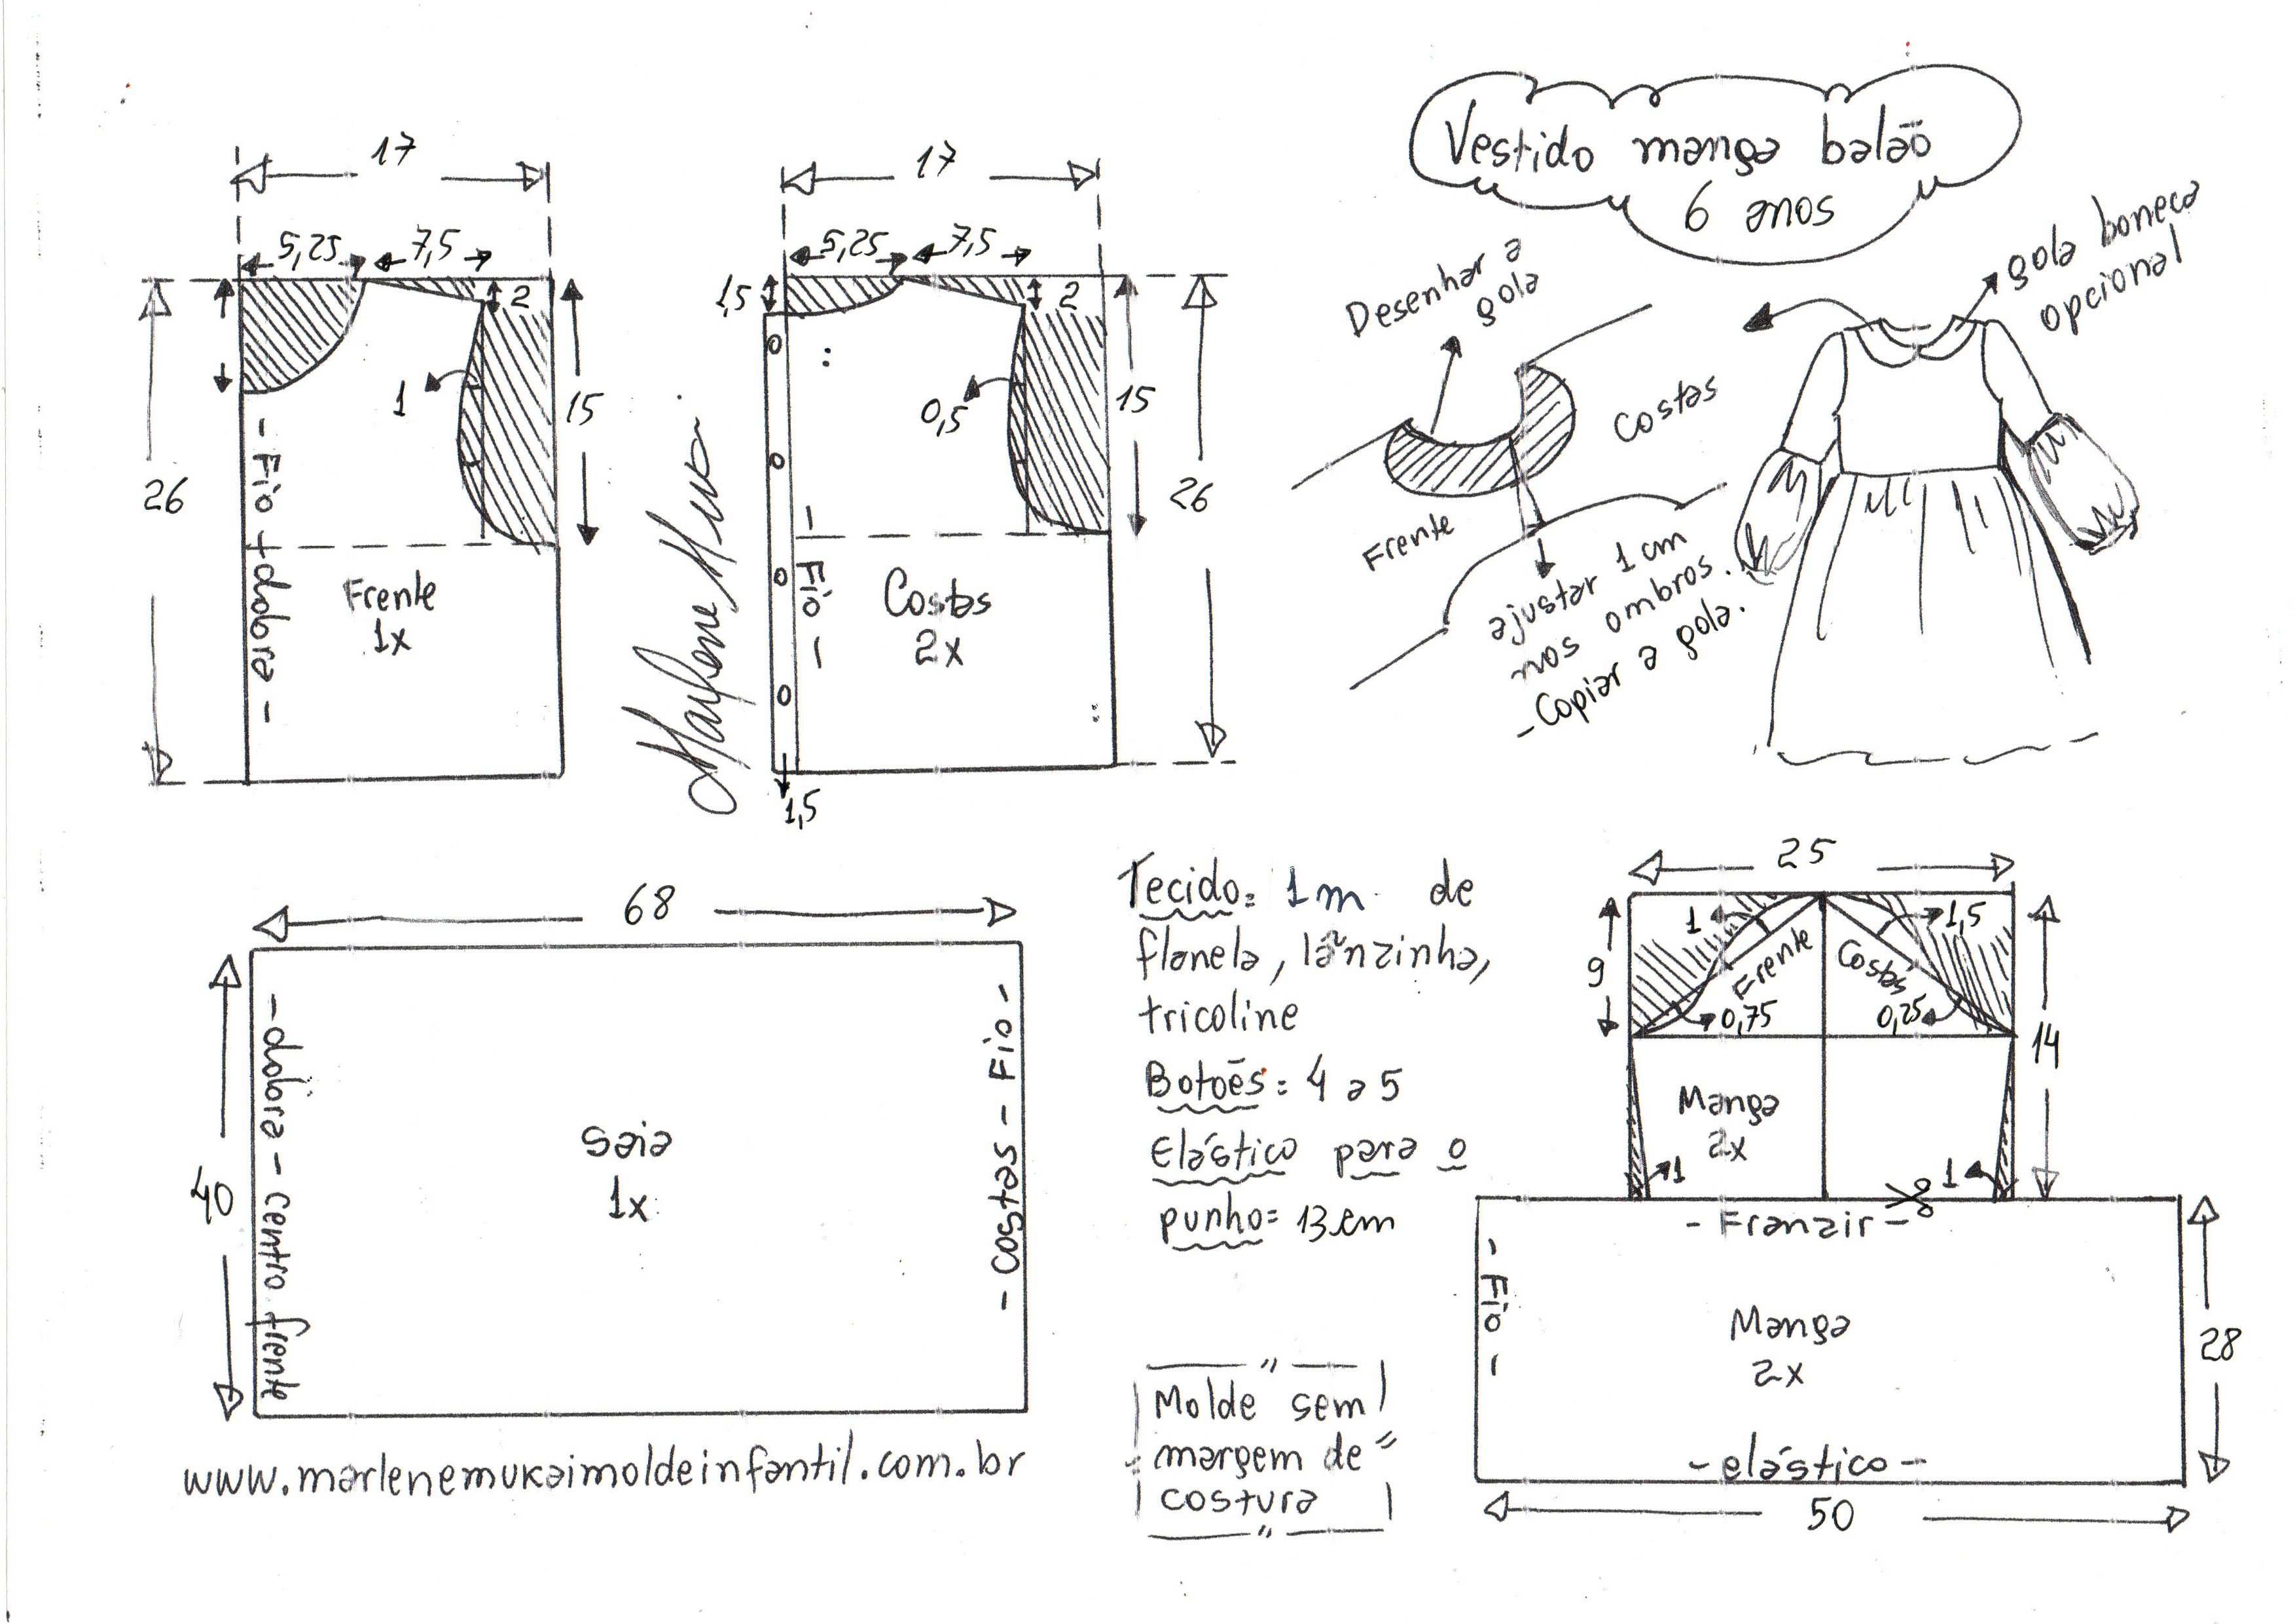 Vestido manga balão
6 anos
17
5,25
7,5
2
1
15
26
- Fio + dobra -
Frente
1x
Marlene Mukai
17
5,25
7,5
1,5
2
0,5
15
26
- Fio -
Costas
2x
1,5
Desenhar a
gola
gola boneca
opcional
Costas
Frente
ajustar 1 cm
nos ombros.
- Copiar a gola.
68
40
- dobra - centro frente
Saia
1x
- costas - Fio -
www.marlenemukaimoldeinfantil.com.br
Tecido= 1m de
flanela, lãnzinha,
tricoline
Botões= 4 a 5
Elástico para o
punho= 13 cm
Molde sem
margem de
costura
25
1
1,5
9
Frente
Costas
0,75
0,25
14
Manga
2x
1
1
- Franzir -
- Fio -
Manga
2x
28
- elástico -
50